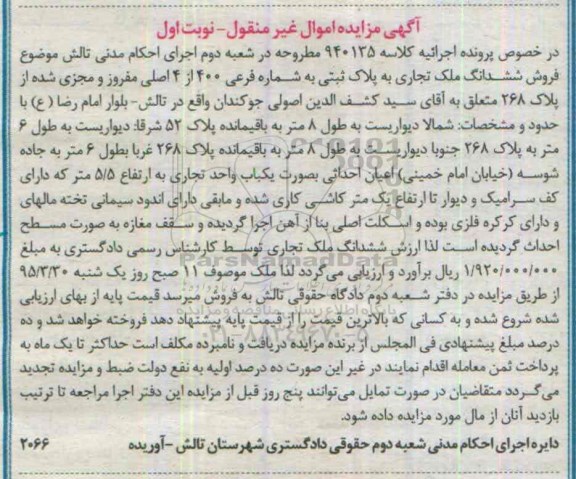 آگهی مزایده اموال غیر منقول - نوبت اول
در خصوص پرونده اجرائیه کلاسه ۹۴۰۱۳۵ مطروحه در شعبه دوم اجرای احکام مدنی تالش موضوع
فروش ششدانگ ملک تجاری به پلاک ثبتی به شماره فرعی ۴۰۰ از ۴ اصلی مفروز و مجزی شده از
پلاک ۲۶۸ متعلق به آقای سید کشف الدین اصولی جوکندان واقع در تالش- بلوار امام رضا (ع) با
حدود و مشخصات: شمالا دیواریست به طول ۸ متر به باقیمانده پلاک ۵۲ شرقا: دیواریست به طول ۶
متر به پلاک ۲۶۸ جنوبا دیواریست به طول ۸ متر به باقیمانده پلاک ۲۶۸ غربا بطول ۶ متر به جاده
شوسه (خیابان امام خمینی) اعیان احداثی بصورت یکباب واحد تجاری به ارتفاع ۵/۵ متر که دارای
کف سرامیک و دیوار تا ارتفاع یک متر کاشی کاری شده و مابقی دارای اندود سیمانی تخته مالهای
و دارای کرکره فلزی بوده و اسکلت اصلی بنا از آهن اجرا گردیده و سقف مغازه به صورت مسطح
احداث گردیده است لذا ارزش ششدانگ ملک تجاری توسط کارشناس رسمی دادگستری به مبلغ
۱/۹۲۰/۰۰۰/۰۰۰ ریال برآورد و ارزیابی می‌گردد لذا ملک موصوف ۱۱ صبح روز یک شنبه ۹۵/۳/۳۰
از طریق مزایده در دفتر شعبه دوم دادگاه حقوقی تالش به فروش میرسد قیمت پایه از بهای ارزیابی
شده شروع شده و به کسانی که بالاترین قیمت را از قیمت پایه پیشنهاد دهد فروخته خواهد شد و ده
درصد مبلغ پیشنهادی فی المجلس از برنده مزایده دریافت و نامبرده مکلف است حداکثر تا یک ماه به
پرداخت ثمن معامله اقدام نمایند در غیر این صورت ده درصد اولیه به نفع دولت ضبط و مزایده تجدید
می‌گردد متقاضیان در صورت تمایل می‌توانند پنج روز قبل از مزایده این دفتر اجرا مراجعه تا ترتیب
بازدید آنان از مال مورد مزایده داده شود.
دایره اجرای احکام مدنی شعبه دوم حقوقی دادگستری شهرستان تالش -آوریده ۲۰۶۶
ParsNamadData